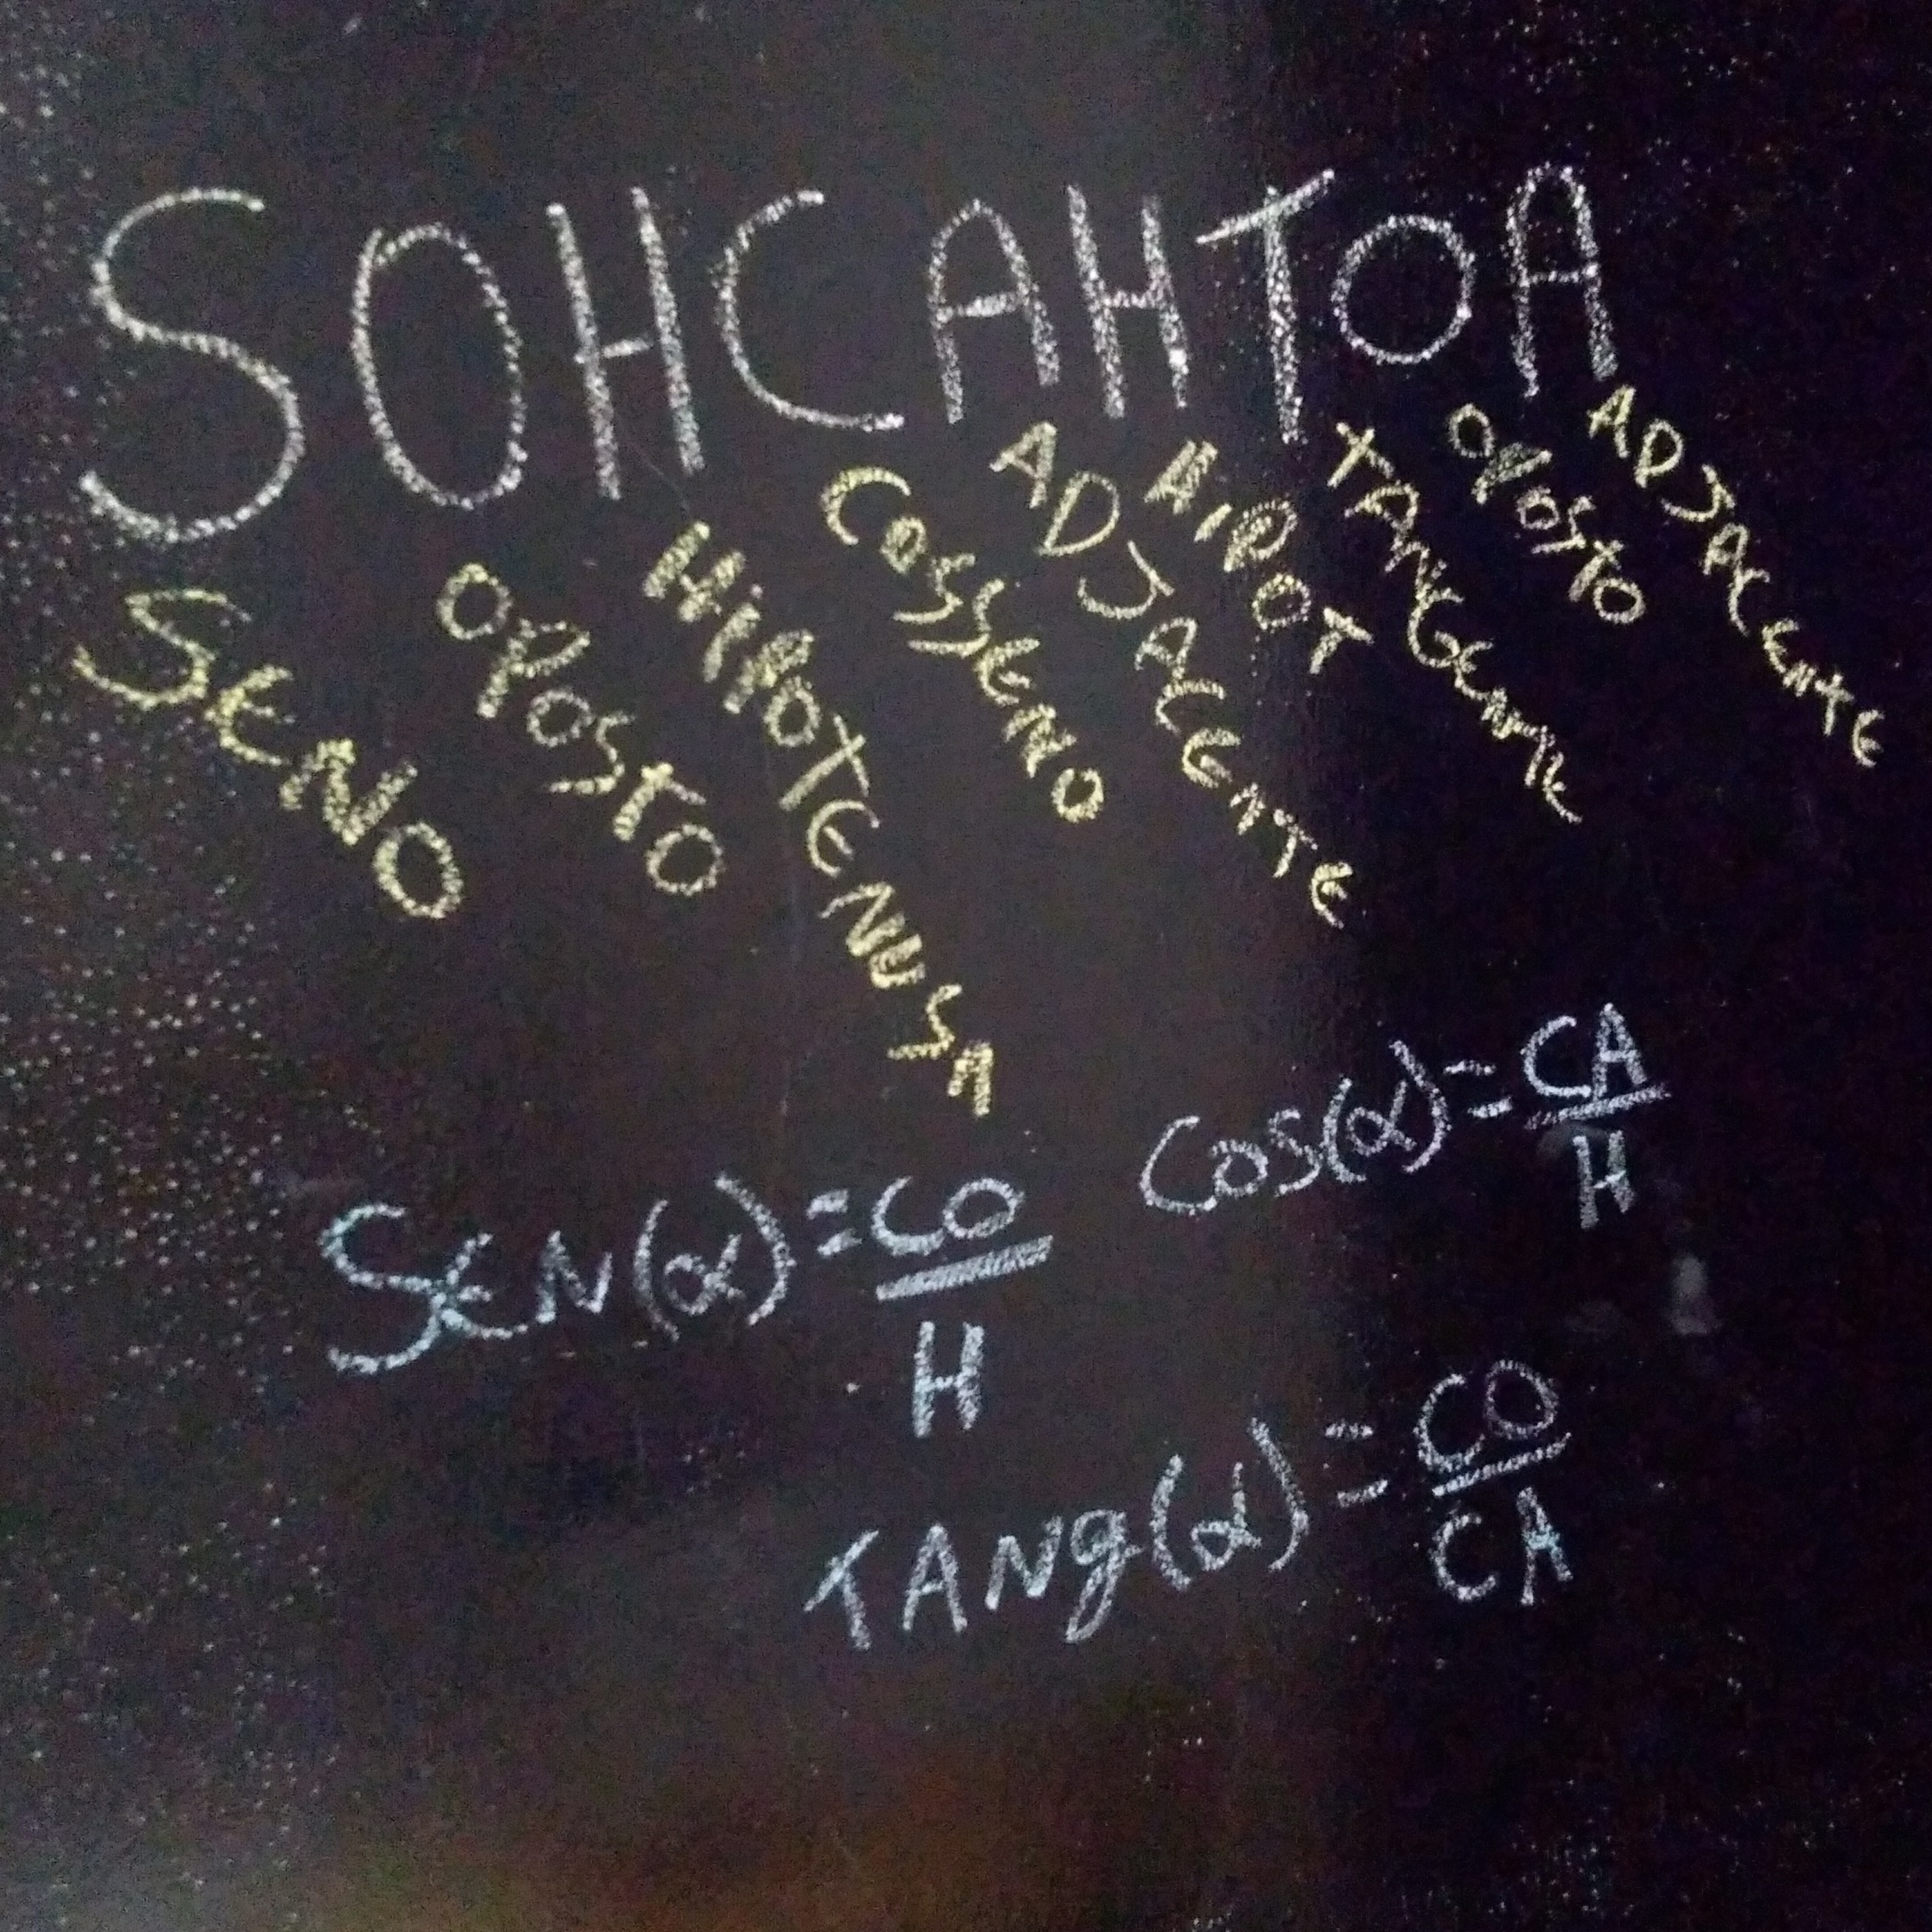 SOHCAHTOA
SENO
OPOSTO
HIPOTENUSA
COSSENO
ADJACENTE
HIPOT
TANGENTE
OPOSTO
ADJACENTE
SEN(α)=CO/H
COS(α)=CA/H
TANg(α)=CO/CA